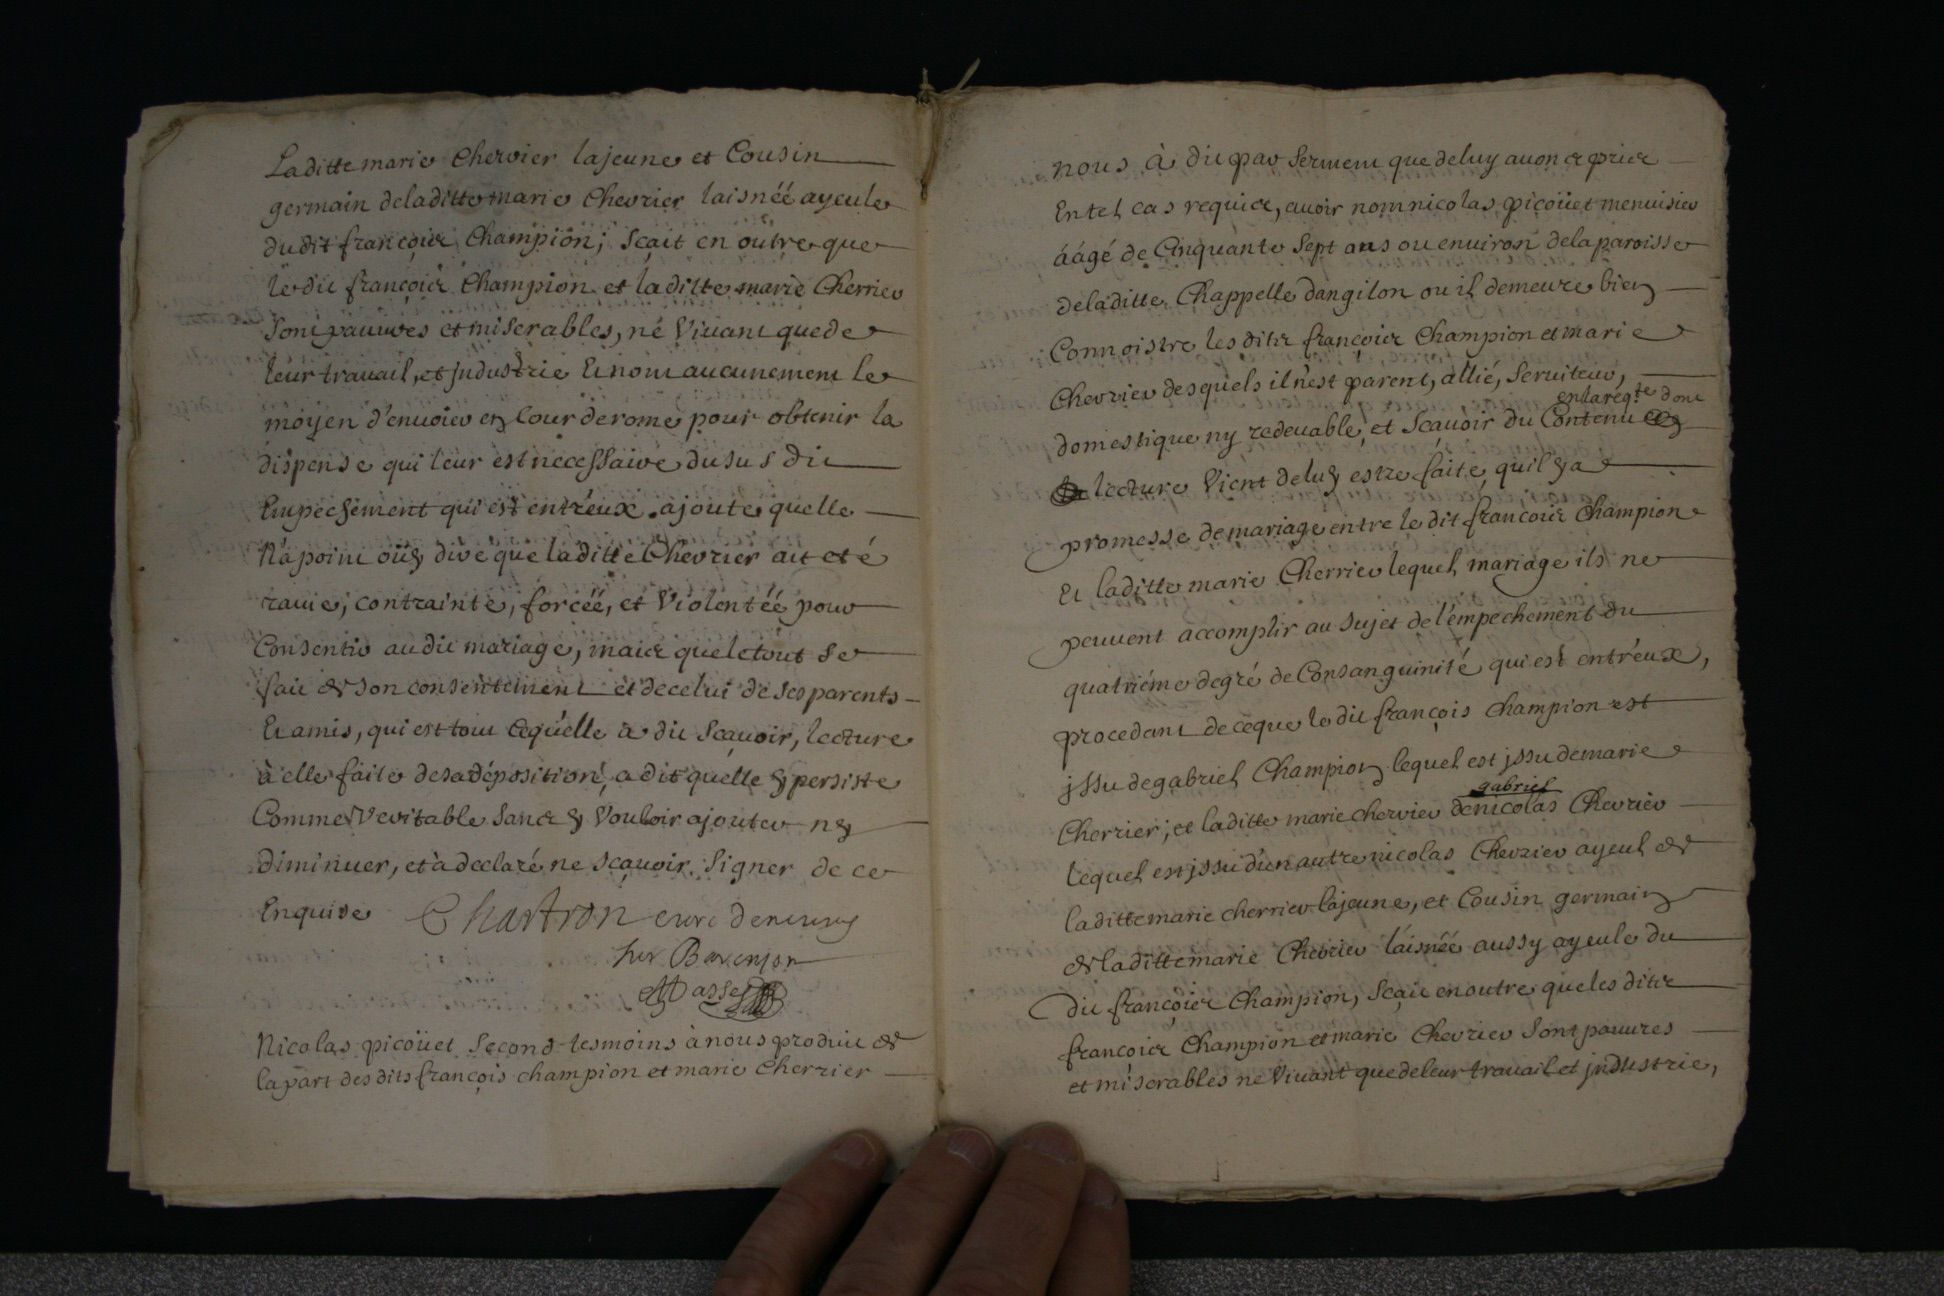 Laditte marie Chervier lajeune et Cousin
germain deladitte marie Chevrier laisnéé ayeule
du dit françois Champion; Sçait en outre que
le dit françois Champion et laditte marie Cherrier
Sont pauvres et miserables, né Vivant que de
leur travail, et jndustrie Et nont aucunement le
moyen d'envoier en Cour de rome pour obtenir la
dispense qui leur est necessaire du sus dit
Empechement qui est entréux. ajoute quelle
N'a point oüy dire que laditte Chevrier ait eté
ravie, contrainte, forcéé, et Violentéé pour
Consentir au dit mariage, mais que le tout se
fait de son consentement et de celui de ses parents
Et amis, qui est tout cequ'elle a dit Sçavoir, lecture
à elle faite de sa déposition, a dit qu'elle y persiste
Comme Veritable Sans y Vouloir ajouter ny
diminuer, et à declaré ne sçavoir Signer de ce
Enquise Chartron curé
Masse
Nicolas picoüet Second tesmoins à nous produit de
la part des dits françois champion et marie Cherrier
nous à dit par serment que de luy avons pris
En tel cas requis, avoir nom nicolas picoüet menuisier
áágé de Cinquante Sept ans ou environ de la paroisse
de laditte Chappelle dangilon ou il demeure bien
Connoistre les dits françois Champion et marie
Chevrier desquels il n'est parent, allié, Serviteur,
domestique ny redevable, et Sçavoir du Contenu
en la reqte dont
lecture Vient de luy estre faite, quil y a
promesse de mariage entre le dit françois Champion
Et laditte marie Cherrier lequel mariage ils ne
peuvent accomplir au Sujet de l'émpechement du
quatriéme degré de Consanguinité qui est entréux,
procedant de ceque le dit françois Champion est
jssu de gabriel Champion lequel est jssu de marie
gabriel
Cherrier; et laditte marie chervier de nicolas Chevrier
lequel est jssu d'un autre nicolas Chevrier ayeul de
laditte marie cherrier lajeune, et Cousin germain
de laditte marie Chevrier l'aisnéé aussy ayeule du
dit françois Champion, Sçait en outre que les dits
françois Champion et marie Chevrier Sont pauvres
et miserables ne Vivant que de leur travail et jndustrie,